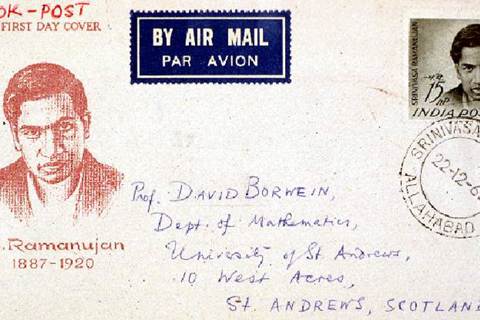 OK-POST
FIRST DAY COVER
BY AIR MAIL
PAR AVION
SRINIVASA RAMANUJAN
15 nP
INDIA POS
SRINIVASA
22-12-6
ALLAHABAD
Prof. DAVID BORWEIN,
Dept. of Mathematics,
University of St Andrews,
10 West Acres,
St. ANDREWS, SCOTLAN
. Ramanujan
1887-1920